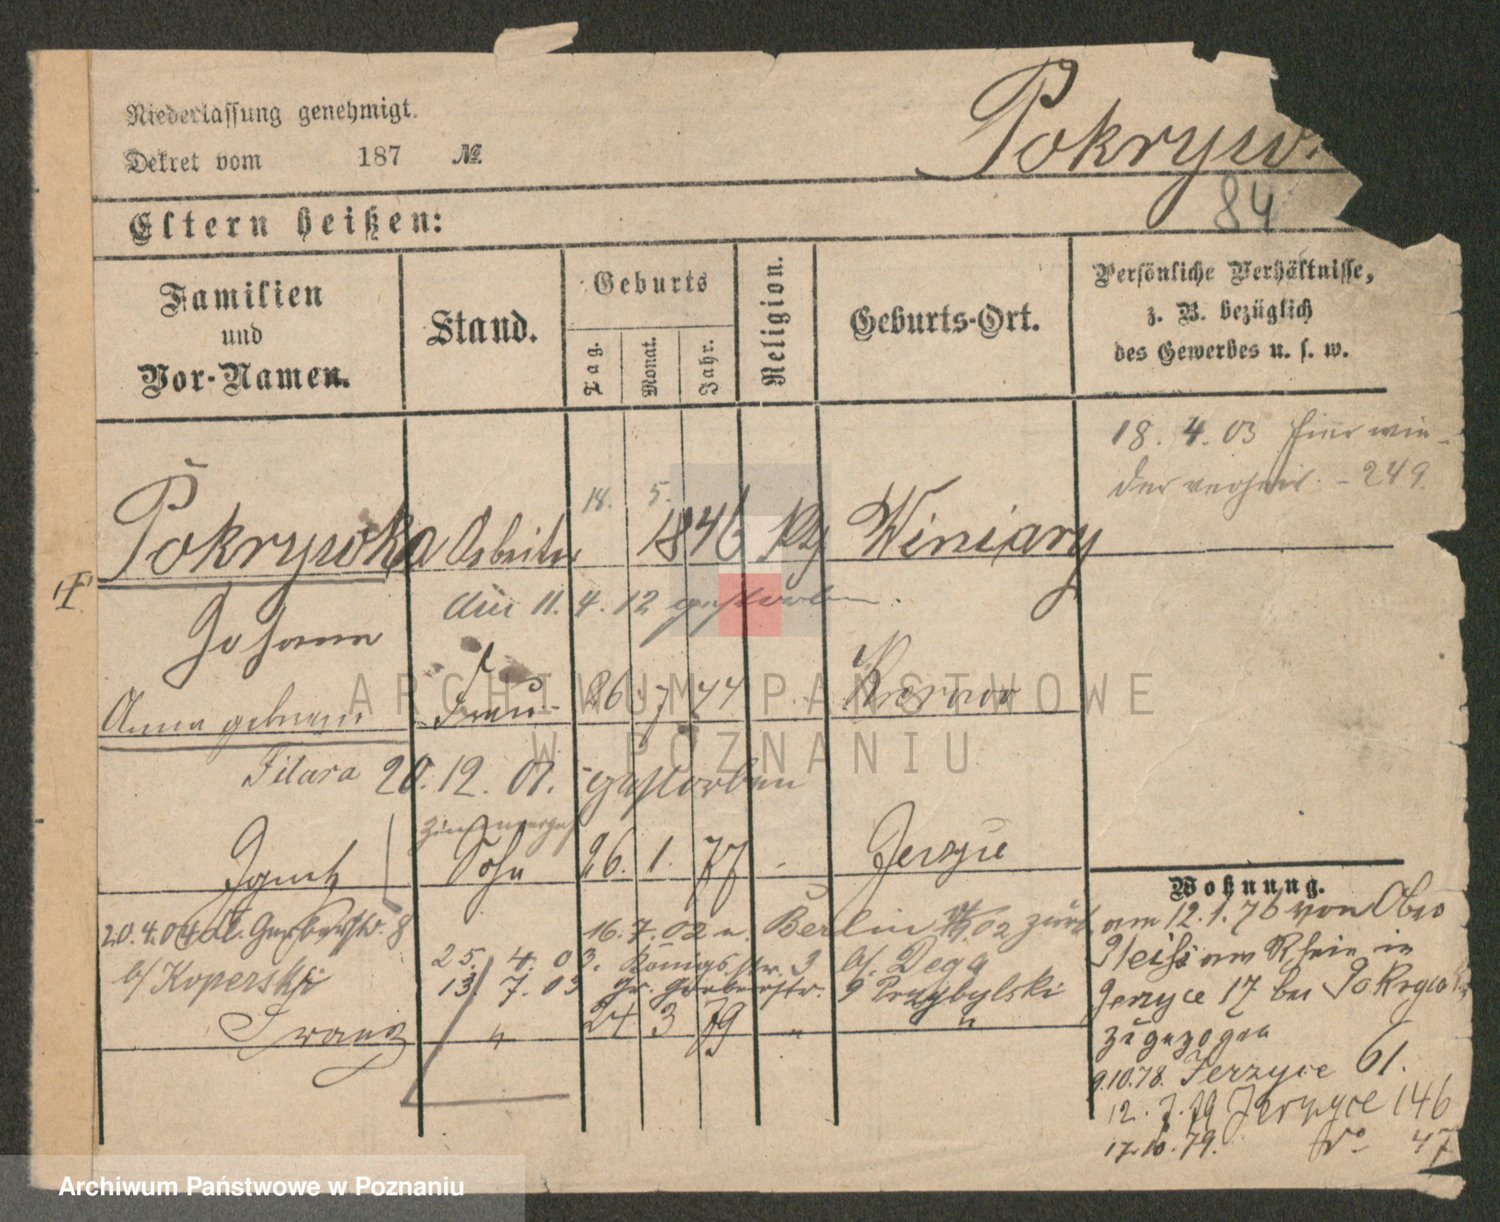 Niederlassung genehmigt.
Dekret vom 187 №
Pokryw
84
Eltern heißen:
Familien
und
Vor-Namen.
Stand.
Geburts
Tag.
Monat.
Jahr.
Religion.
Geburts-Ort.
Persönliche Verhältnisse,
z. B. bezüglich
des Gewerbes u. s. w.
18. 4. 03 hier wie-
der - 249.
18. 5.
Pokrywka Arbeiter 1846 Winiary
Johann
den 11. 4. 12 gestorben.
Anna geborene Frau 26 7 44
Fitara 20. 12. 01. gestorben
Ignatz Sohn 26. 1. 77 - Jerzyce
Wohnung.
am 12. 1. 76 von Ober
am Rhein in
Jerzyce 17 bei Pokrywka
zugezogen
9.10.78. Jerzyce 61.
12. 7. 79 Jerzyce 146
17. 10. 79. do 47
20. 4. 04 8
b/ Koperski
16. 7. 02 n. Berlin 02 zurück
25. 4. 03. Königsstr. 9 b/. Dega
13. 7. 03 Gr. Gerberstr. 9 Przybylski
Franz " 24 3 79 " "
ARCHIWUM PAŃSTWOWE
W POZNANIU
Archiwum Państwowe w Poznaniu